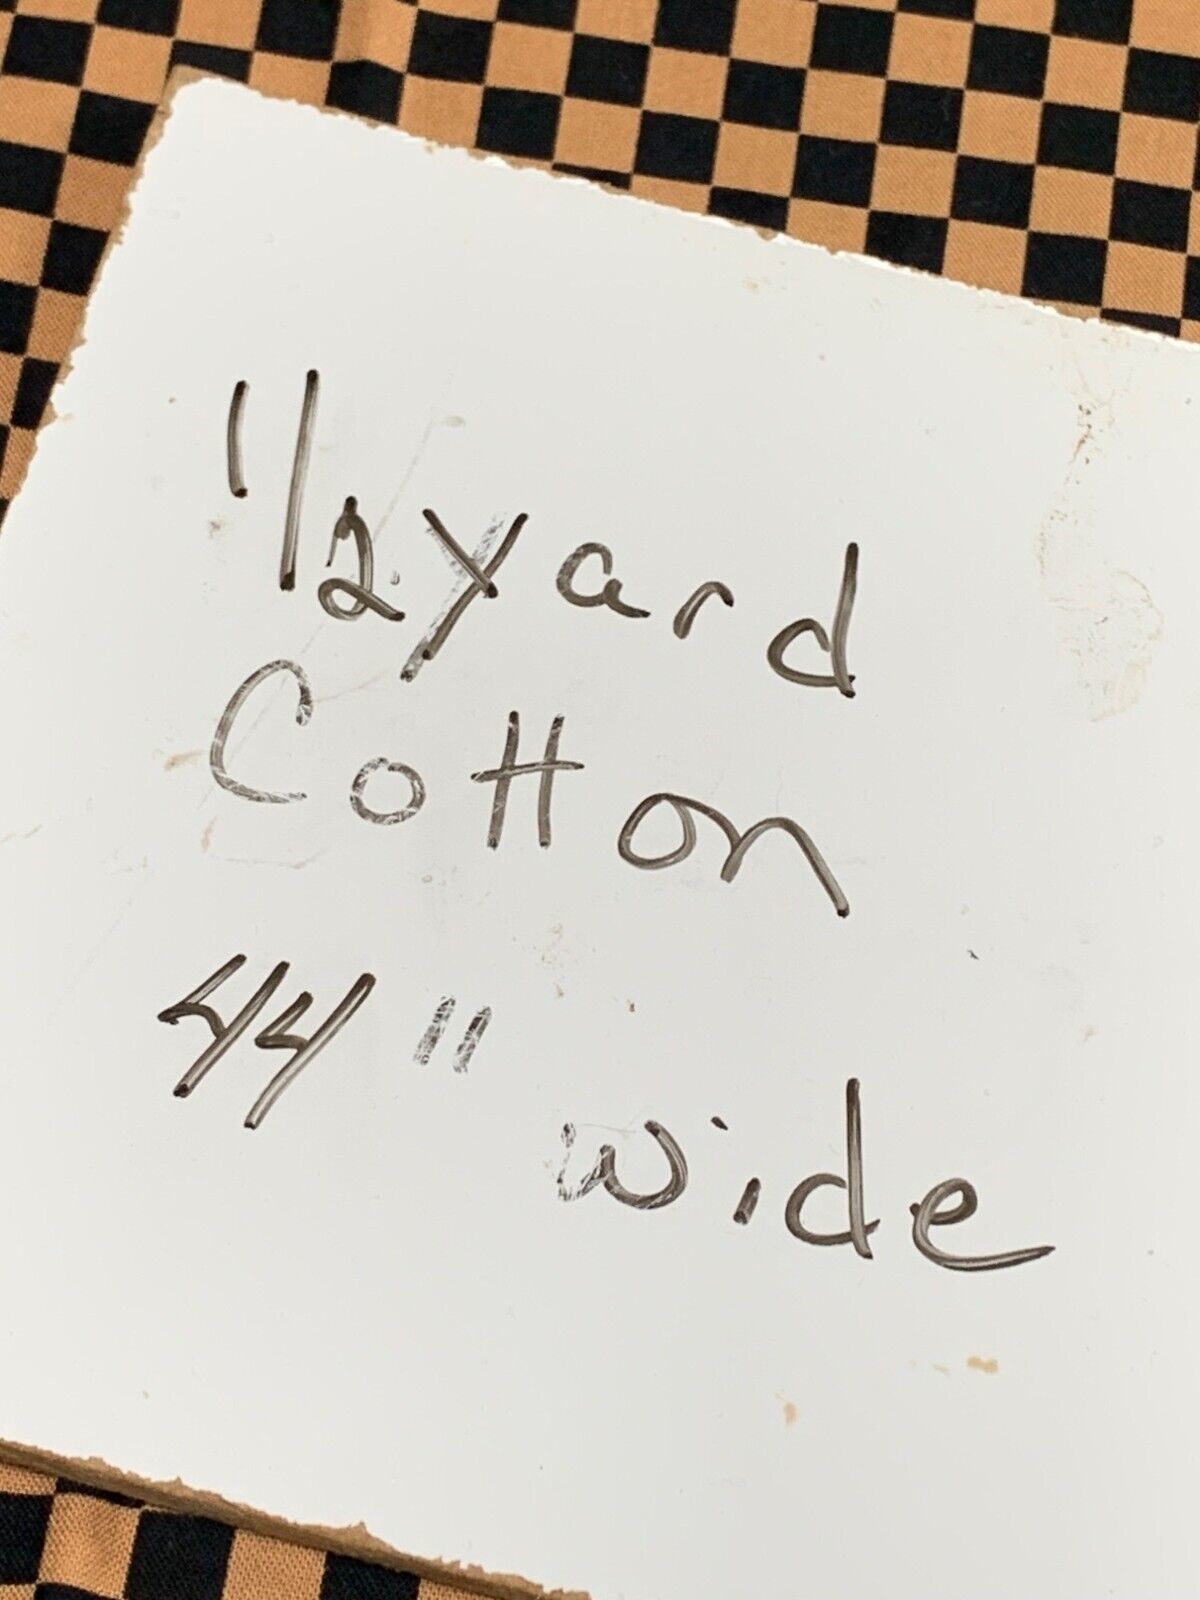 1/2 yard
Cotton
44" wide